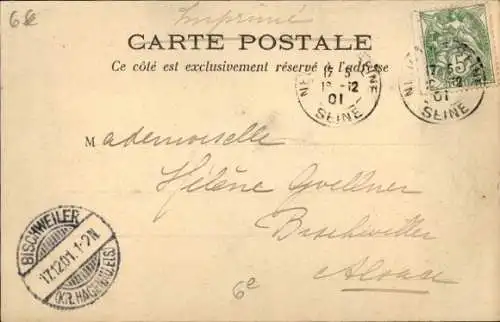 6e
Imprimé
CARTE POSTALE
Ce côté est exclusivement réservé à l'adresse
17 5
12 -12
01
SEINE
17 5
12
01
SEINE
5
Mademoiselle
Hélène Goellner
Bischwiller
Alsace
BISCHWEILER
17.12.01. 1-2N
(KR. HAGENAU, ELS)
6e